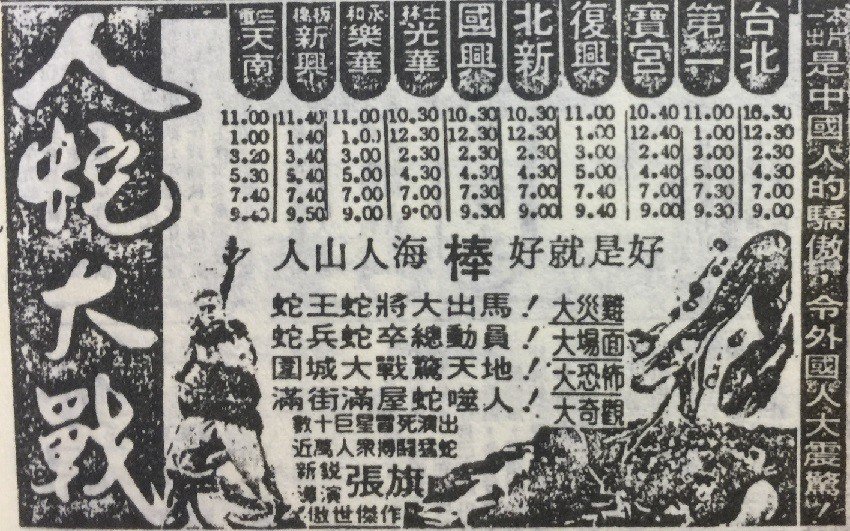 本片一出是中國人的驕傲，令外國人大震驚！
三重天南 板橋新興 永和樂華 士林光華 國興 北新 復興 寶宮 第一 台北
11.00 11.40 11.00 10.30 10.30 10.30 11.00 10.40 11.00 10.30
1.00 1.40 1.00 12.30 12.30 12.30 1.00 12.40 1.00 12.30
3.20 3.40 3.00 2.30 2.30 2.30 3.00 2.40 3.00 2.30
5.30 5.40 5.00 4.30 4.30 4.30 5.00 4.40 5.00 4.30
7.40 7.40 7.00 7.00 7.00 7.00 7.40 7.00 7.30 7.00
9.40 9.50 9.00 9.00 9.30 9.00 9.40 9.00 9.30 9.00
人山人海 棒 好就是好
蛇王蛇將大出馬！大災難
蛇兵蛇卒總動員！大場面
圍城大戰驚天地！大恐怖
滿街滿屋蛇噬人！大奇觀
數十巨星冒死演出
近萬人衆搏鬪猛蛇
新銳導演 張旗
傲世傑作
人蛇大戰